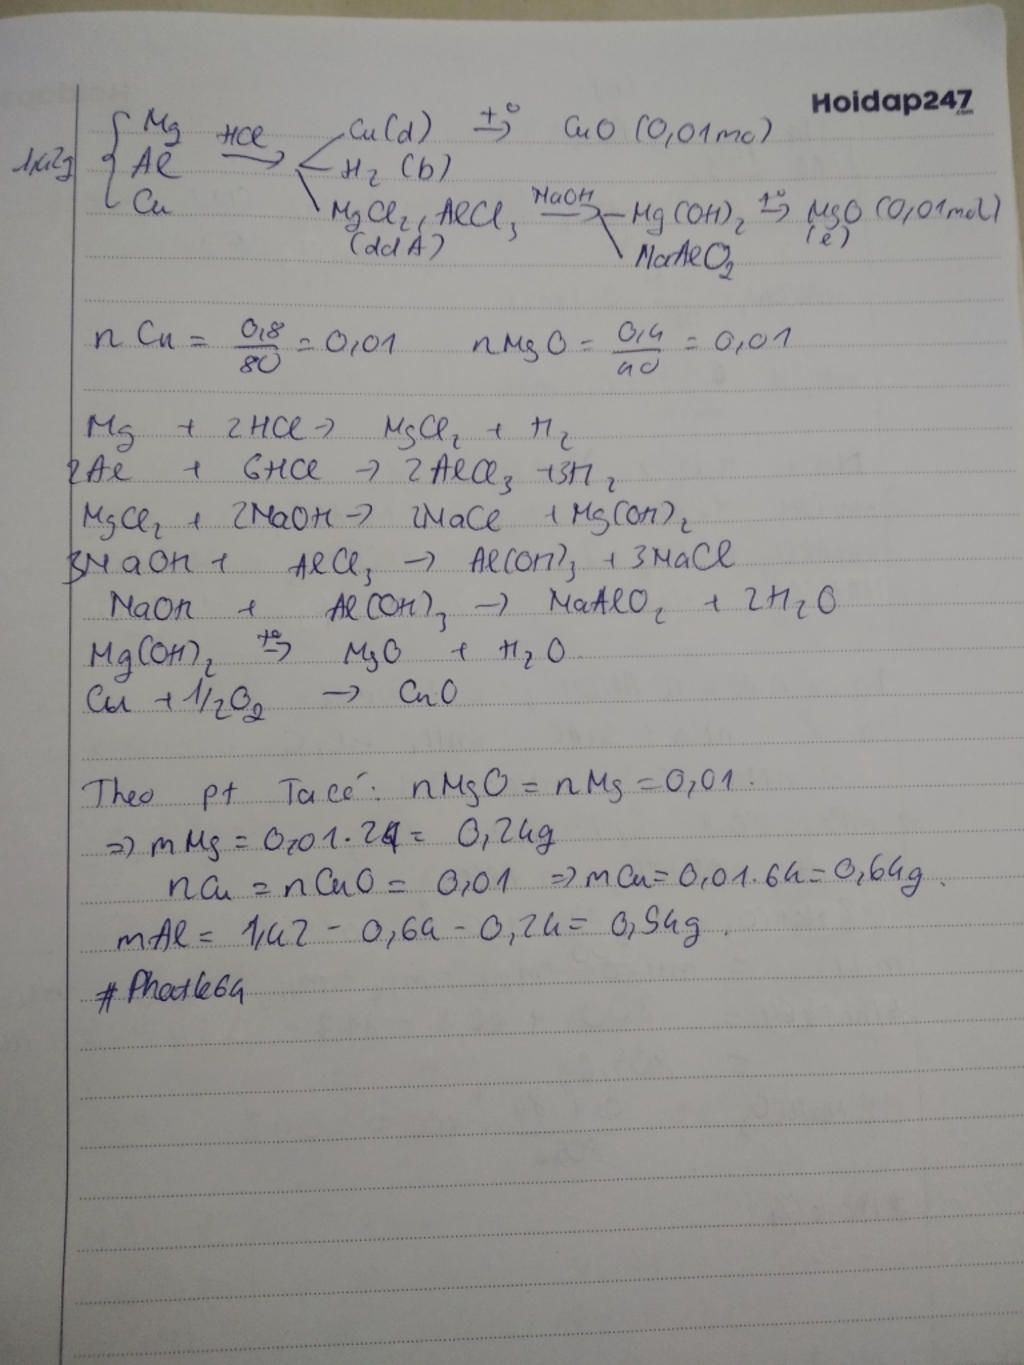 Hoidap247
.com
1,42g { Mg Al Cu HCl → Cu(d) t° → CuO (0,01mo)
H2 (b)
MgCl2, AlCl3 NaOH → Mg(OH)2 t° → MgO (0,01mol)
(ddA) NaAlO2 (e)
nCu = 0,8/80 = 0,01 nMgO = 0,4/40 = 0,01
Mg + 2HCl → MgCl2 + H2
2Al + 6HCl → 2AlCl3 + 3H2
MgCl2 + 2NaOH → 2NaCl + Mg(OH)2
3NaOH + AlCl3 → Al(OH)3 + 3NaCl
NaOH + Al(OH)3 → NaAlO2 + 2H2O
Mg(OH)2 t° → MgO + H2O
Cu + 1/2O2 → CuO
Theo pt Ta có: nMgO = nMg = 0,01.
=> mMg = 0,01.24 = 0,24g
nCu = nCuO = 0,01 => mCu = 0,01.64 = 0,64g.
mAl = 1,42 - 0,64 - 0,24 = 0,54g.